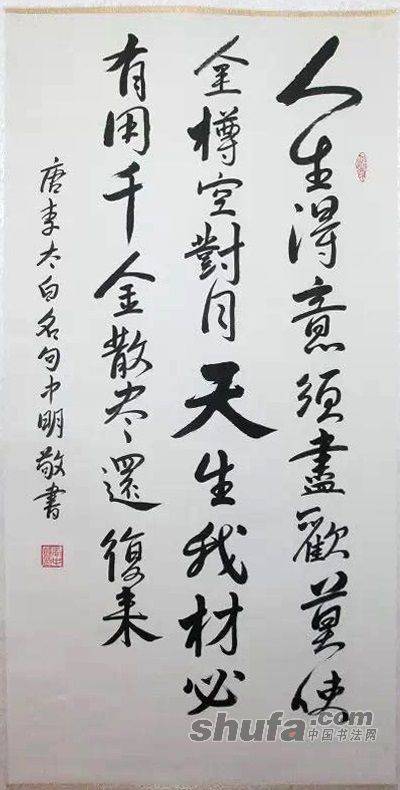 人生得意須盡歡莫使
金樽空對月天生我材必
有用千金散尽還復来
唐李太白名句中明敬書
shufa.com
中国书法网